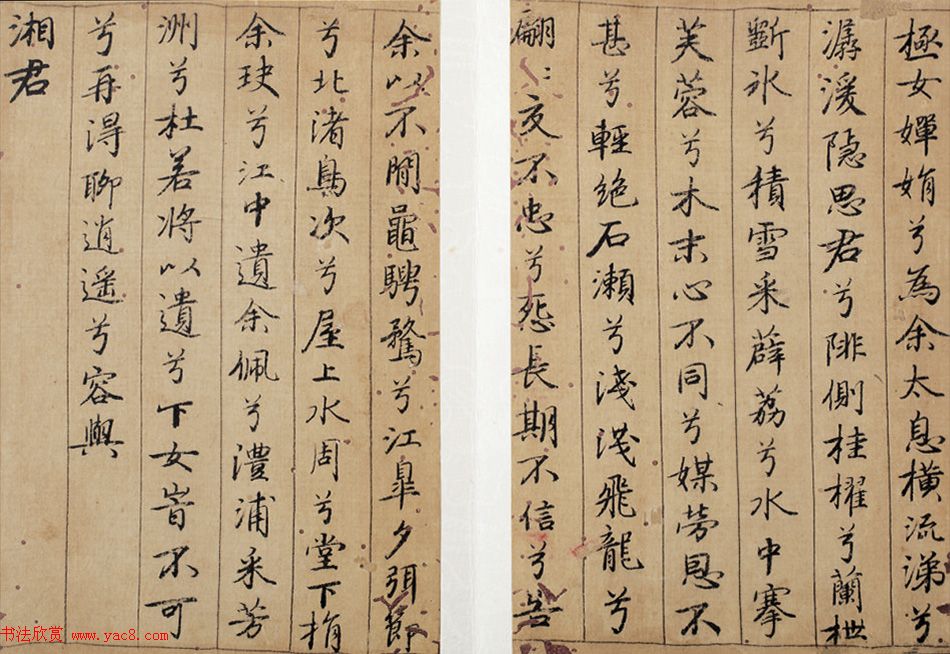 極女嬋媊兮為余太息橫流涕兮
潺湲隐思君兮陫側桂櫂兮蘭枻
斲冰兮積雪采薜荔兮水中搴
芙蓉兮木末心不同兮媒勞恩不
甚兮輕絶石瀬兮淺淺飛龍兮
翩〻交不忠兮怨長期不信兮告
余以不閒鼂騁騖兮江皐夕弭節
兮北渚鳥次兮屋上水周兮堂下捐
余玦兮江中遺余佩兮澧浦采芳
洲兮杜若將以遺兮下女峕不可
兮再得聊逍遥兮容與
湘君
书法欣赏 www.yac8.com